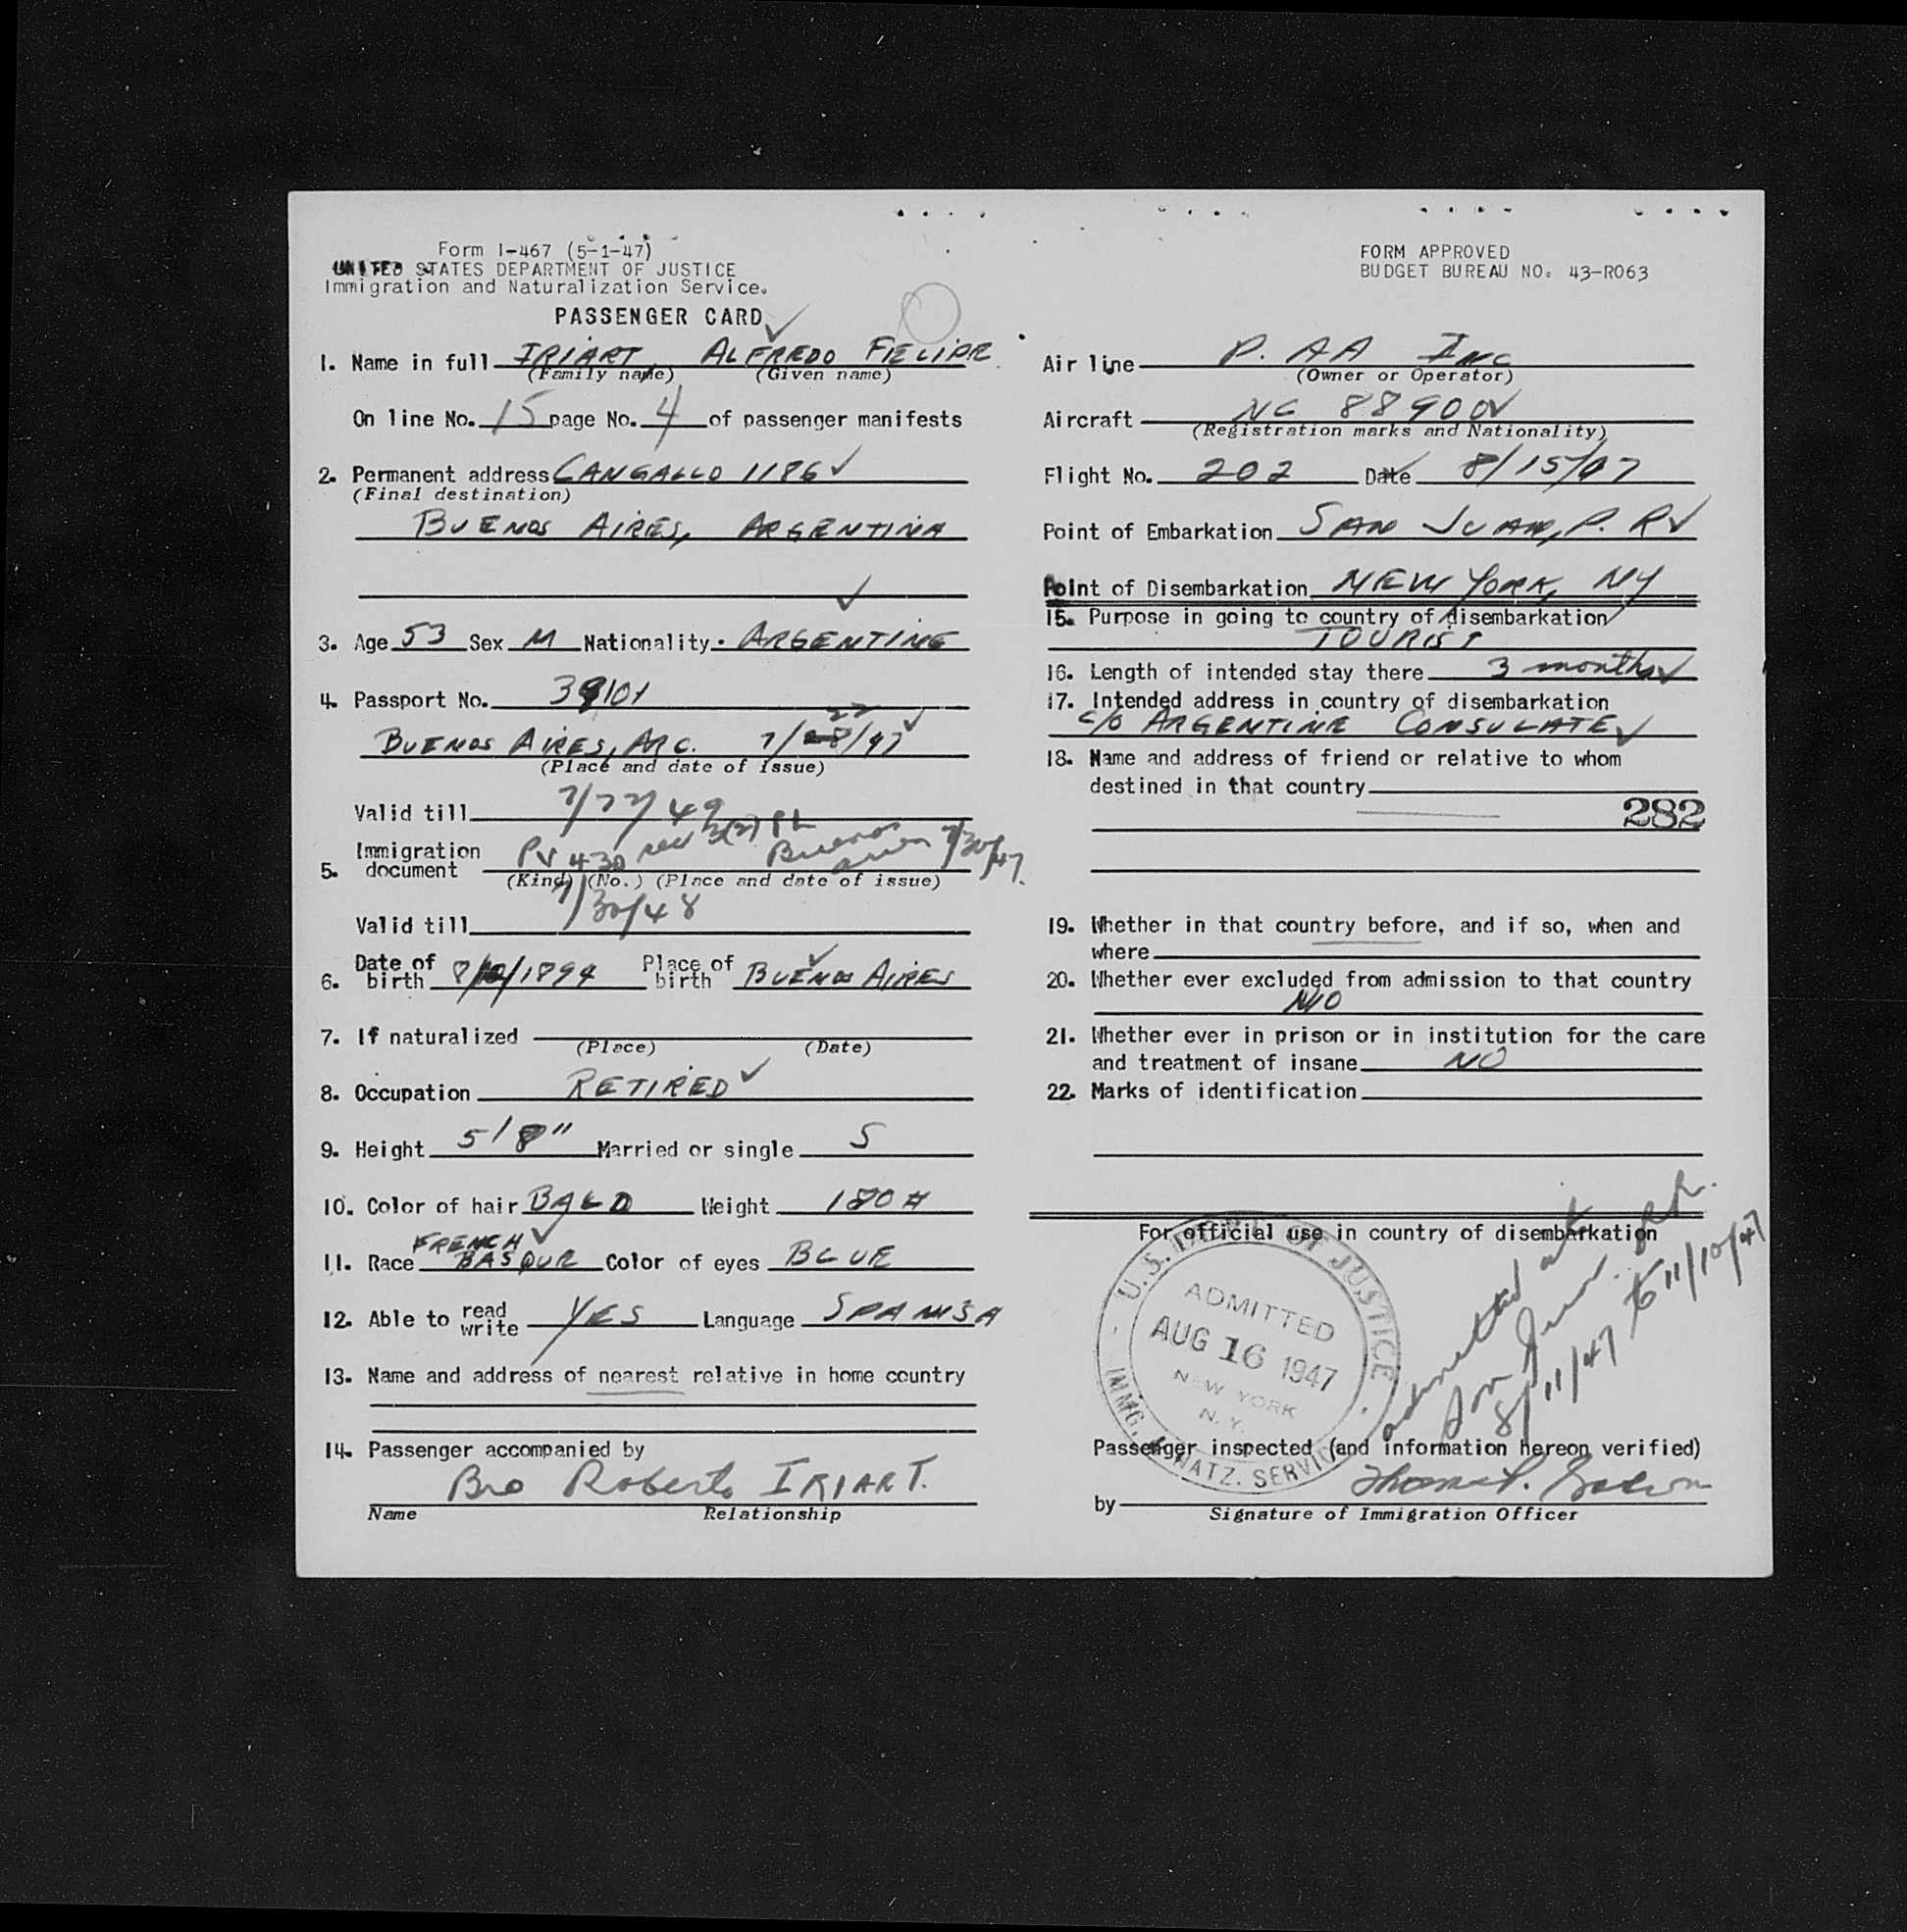 Form I-467 (5-1-47)
UNITED STATES DEPARTMENT OF JUSTICE
Immigration and Naturalization Service.
PASSENGER CARD
1. Name in full IRIART, ALFREDO FELIPE
(Family name) (Given name)
On line No. 15 page No. 4 of passenger manifests
2. Permanent address CANGALLO 1186
(Final destination)
BUENOS AIRES, ARGENTINA
3. Age 53 Sex M Nationality ARGENTINE
4. Passport No. 39101
BUENOS AIRES, ARG. 7/22/47
(Place and date of issue)
Valid till 7/22/49
5. Immigration document PV 430 sec 3(2) Buenos Aires 7/30/47.
(Kind) (No.) (Place and date of issue)
Valid till 7/30/48
6. Date of birth 8/ /1894 Place of birth BUENOS AIRES
7. If naturalized
(Place) (Date)
8. Occupation RETIRED
9. Height 5'8" Married or single S
10. Color of hair BALD Weight 180 #
FRENCH
11. Race BASQUE Color of eyes BLUE
12. Able to read write YES Language SPANISH
13. Name and address of nearest relative in home country
14. Passenger accompanied by
Bro Roberto IRIART.
Name Relationship
FORM APPROVED
BUDGET BUREAU NO. 43-R063
Air line P. AA INC
(Owner or Operator)
Aircraft NC 88900
(Registration marks and Nationality)
Flight No. 202 Date 8/15/47
Point of Embarkation SAN JUAN, P. R
Point of Disembarkation NEW YORK, NY
15. Purpose in going to country of disembarkation
TOURIST
16. Length of intended stay there 3 months
17. Intended address in country of disembarkation
c/o ARGENTINE CONSULATE
18. Name and address of friend or relative to whom
destined in that country
282
19. Whether in that country before, and if so, when and
where
20. Whether ever excluded from admission to that country
NO
21. Whether ever in prison or in institution for the care
and treatment of insane NO
22. Marks of identification
For official use in country of disembarkation
U.S. DEPT. OF JUSTICE
ADMITTED
AUG 16 1947
NEW YORK
N.Y.
IMMG. & NATZ. SERVICE
admitted at
San Juan P.R.
8/11/47 to 11/10/47
Passenger inspected (and information hereon verified)
by
Signature of Immigration Officer